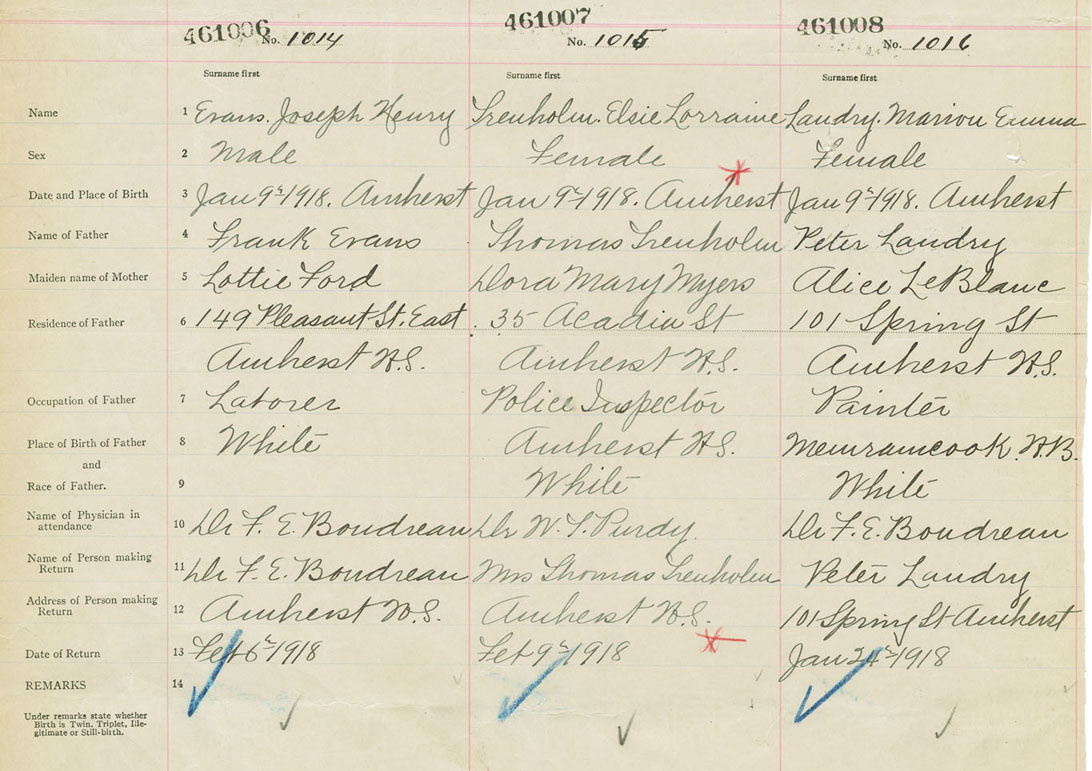 461006 461007 461008
No. 1014 No. 1015 No. 1016
Surname first Surname first Surname first
Name 1 Evans. Joseph Henry Trenholm. Elsie Lorraine Landry. Marion Emma
Sex 2 Male Female Female
Date and Place of Birth 3 Jan 9th 1918. Amherst Jan 9th 1918. Amherst Jan 9th 1918. Amherst
Name of Father 4 Frank Evans Thomas Trenholm Peter Landry
Maiden name of Mother 5 Lottie Ford Dora Mary Myers Alice LeBlanc
Residence of Father 6 149 Pleasant St. East 35 Acadia St 101 Spring St
Amherst N.S. Amherst N.S. Amherst N.S.
Occupation of Father 7 Laborer Police Inspector Painter
Place of Birth of Father 8 White Amherst N.S. Memramcook. N.B.
and
Race of Father. 9 White White
Name of Physician in
attendance 10 Dr F. E. Boudreau Dr W. T. Purdy. Dr F. E. Boudreau
Name of Person making
Return 11 Dr F. E. Boudreau Mrs Thomas Trenholm Peter Landry
Address of Person making
Return 12 Amherst N.S. Amherst N.S. 101 Spring St Amherst
Date of Return 13 Feb 6th 1918 Feb 9th 1918 Jan 24th 1918
REMARKS 14
Under remarks state whether
Birth is Twin, Triplet, Ille-
gitimate or Still-birth.